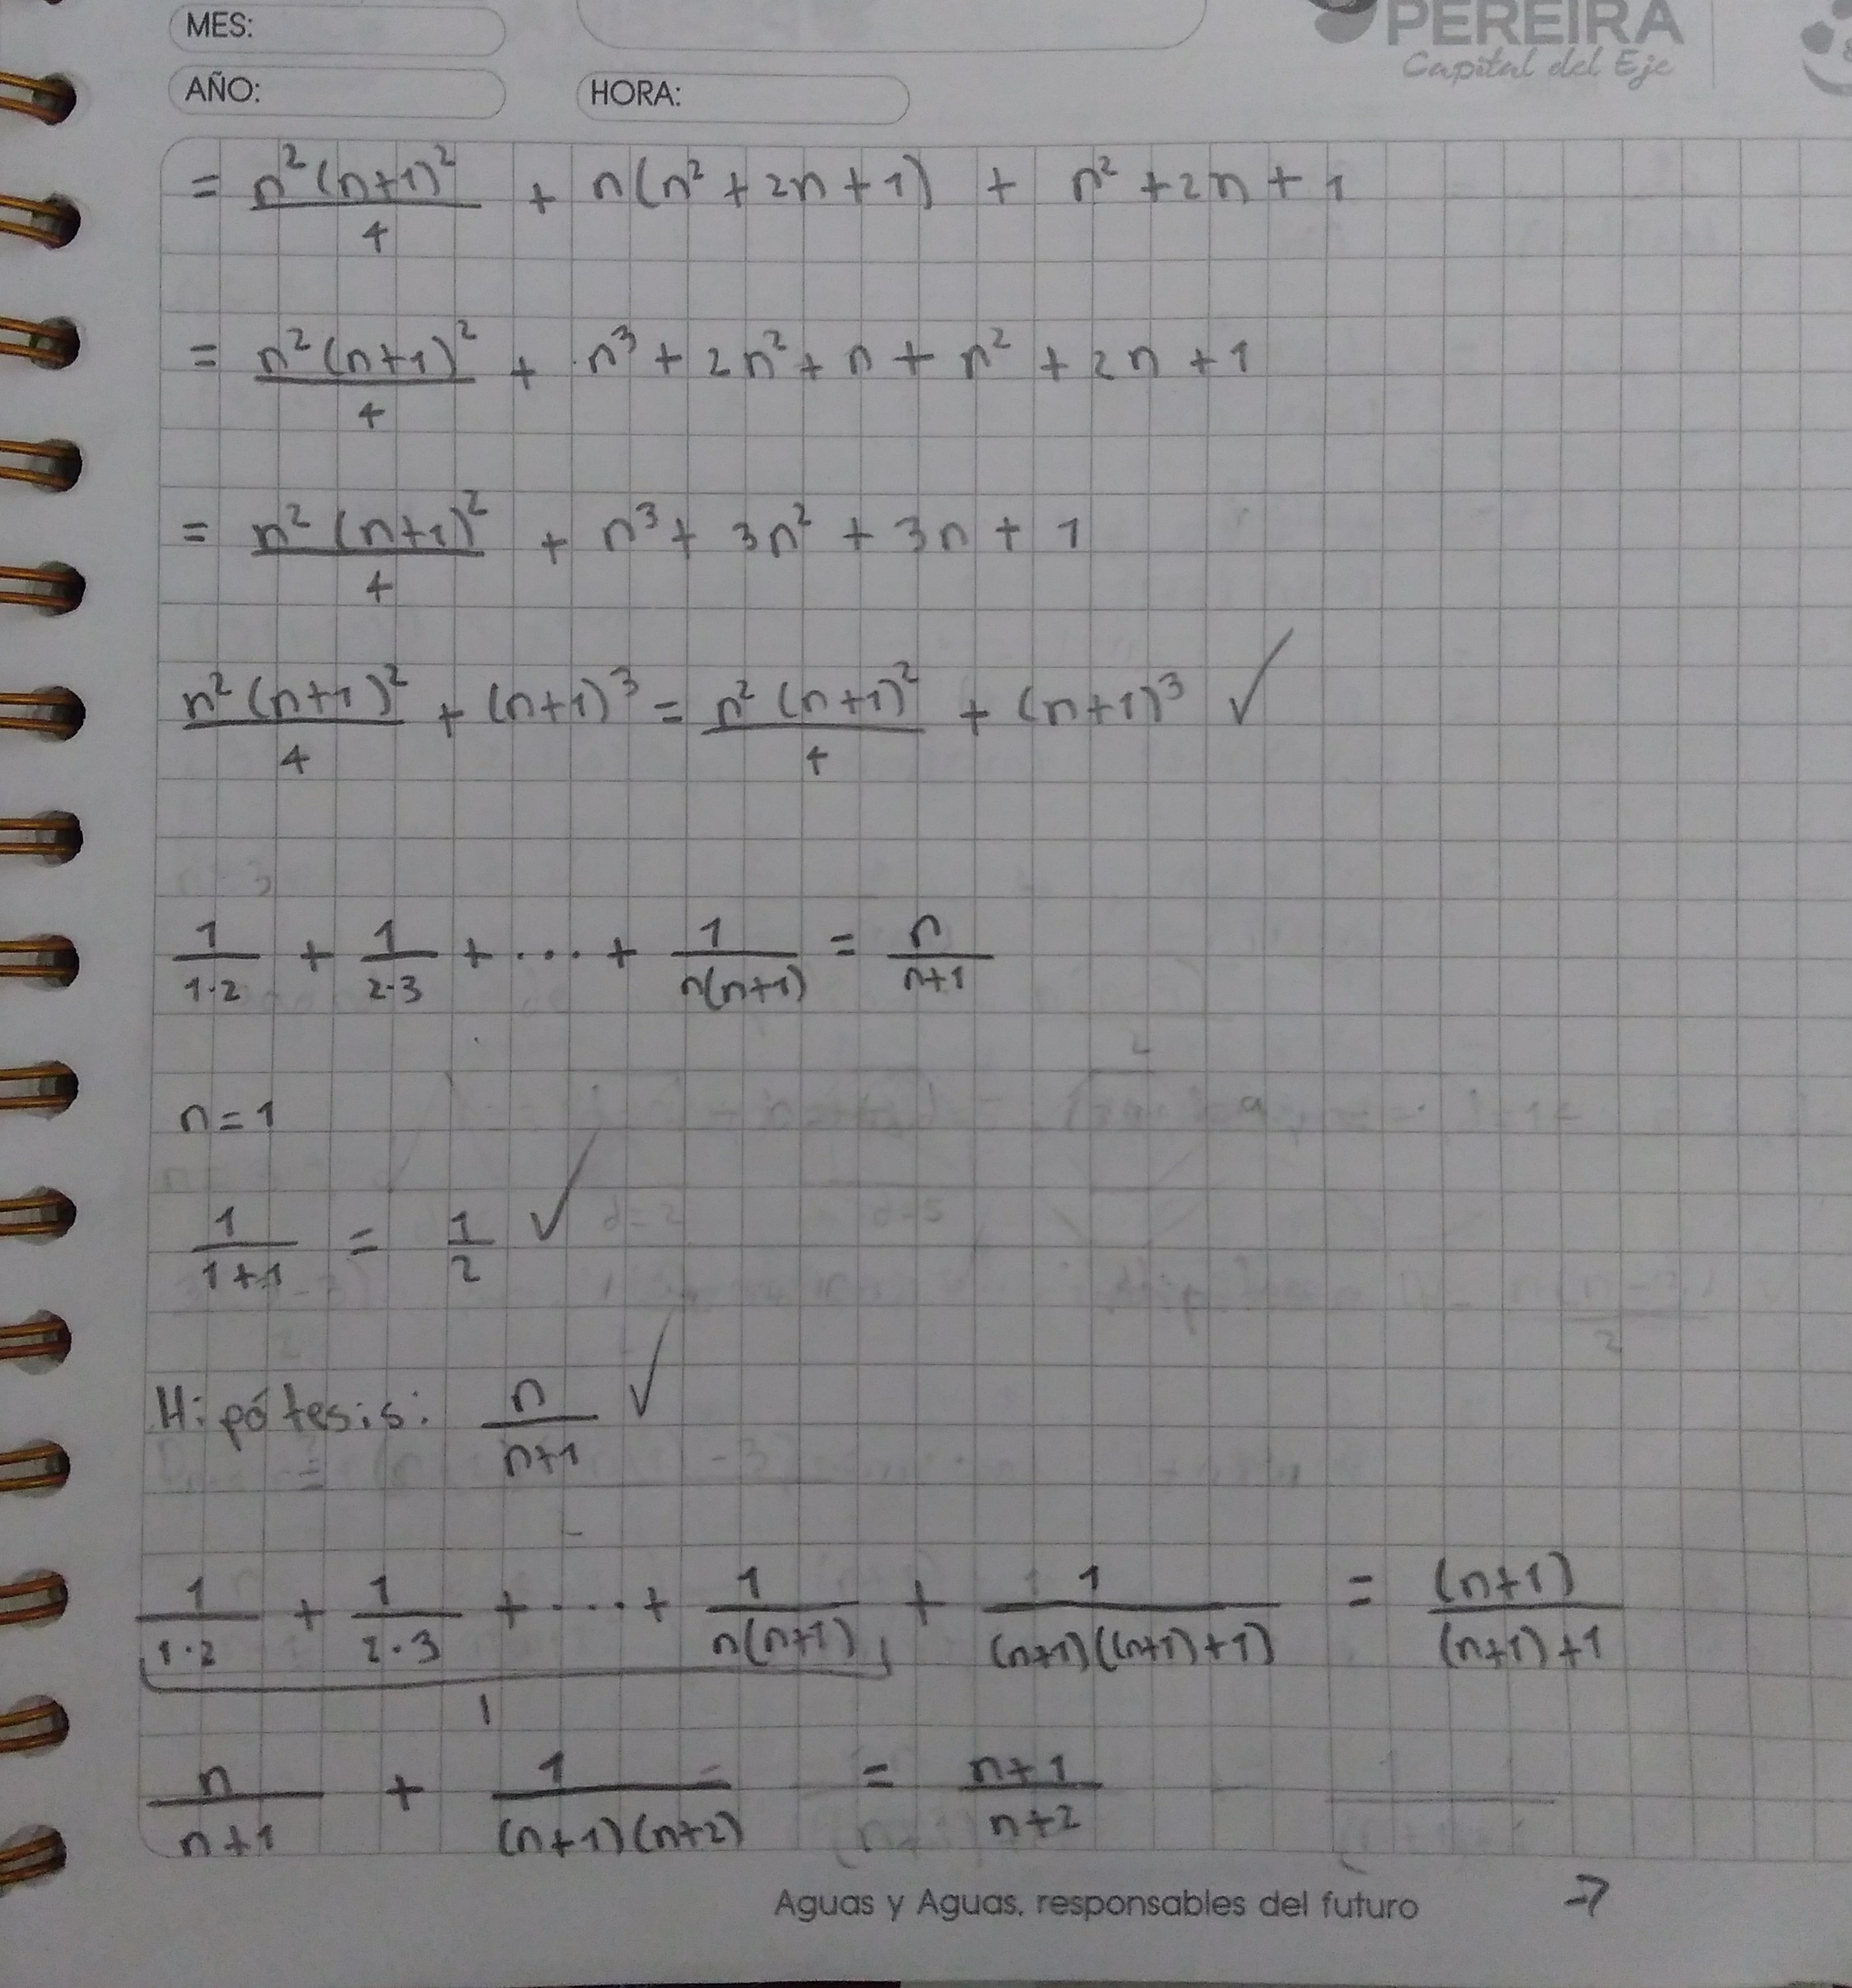 MES:
PEREIRA
Capital del Eje
AÑO:
HORA:
= n²(n+1)²/4 + n(n² + 2n + 1) + n² + 2n + 1
= n²(n+1)²/4 + n³ + 2n² + n + n² + 2n + 1
= n²(n+1)²/4 + n³ + 3n² + 3n + 1
n²(n+1)²/4 + (n+1)³ = n²(n+1)²/4 + (n+1)³ ✓
1/1·2 + 1/2·3 + ... + 1/n(n+1) = n/n+1
n=1
1/1+1 = 1/2 ✓
Hipótesis: n/n+1 ✓
1/1·2 + 1/2·3 + ... + 1/n(n+1) + 1/(n+1)((n+1)+1) = (n+1)/(n+1)+1
n/n+1 + 1/(n+1)(n+2) = n+1/n+2
Aguas y Aguas, responsables del futuro ⇒